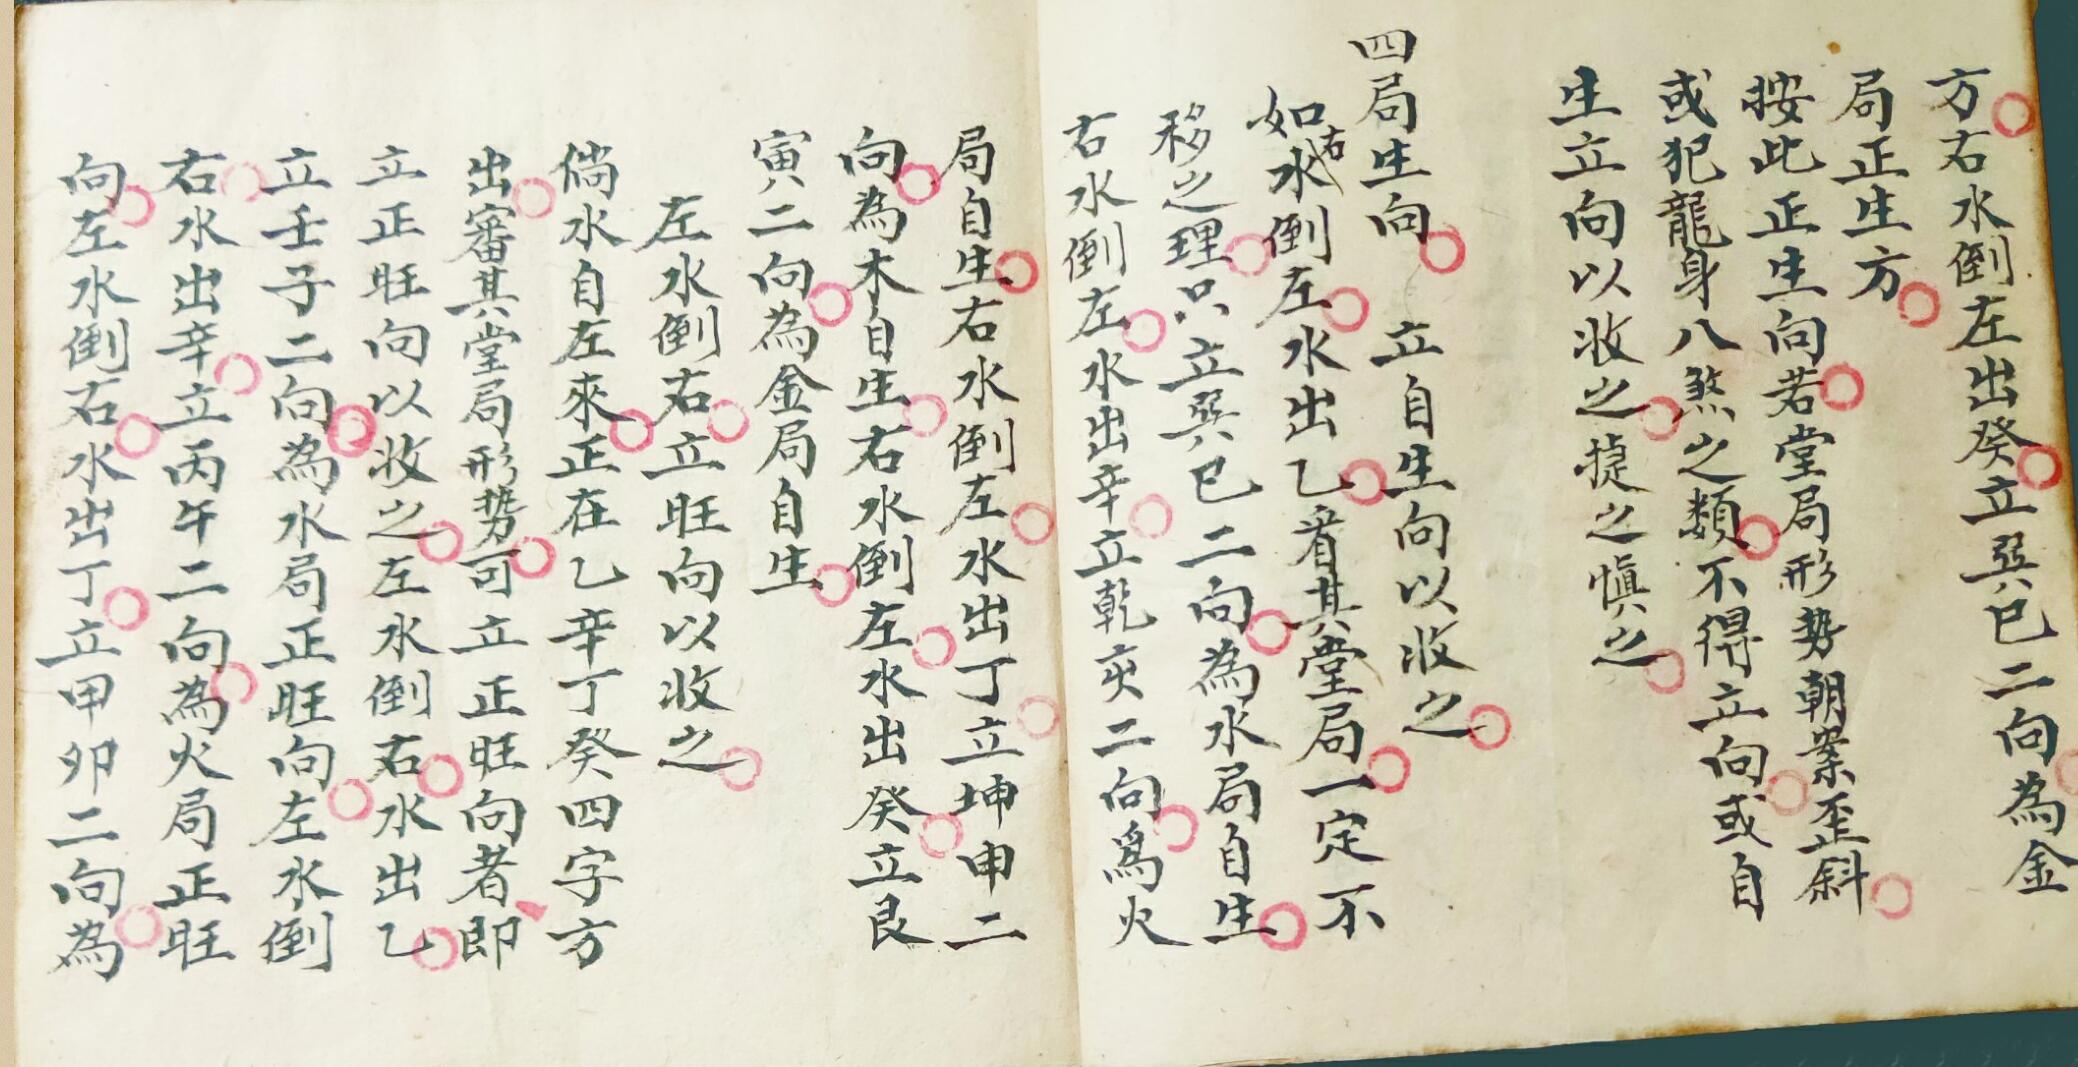 方右水倒左出癸立巽巳二向為金
局正生方
按此正生向若堂局形势朝案歪斜
或犯龍身八煞之類不得立向或自
生立向以收之㨗之慎之
四局生向　立自生向以收之
如右水倒左水出乙看其堂局一定不
移之理只立巽巳二向為水局自生
右水倒左水出辛立乾亥二向爲火
局自生右水倒左水出丁立坤申二
向為木自生右水倒左水出癸立艮
寅二向為金局自生
左水倒右立旺向以收之
倘水自左來正在乙辛丁癸四字方
出審其堂局形势可立正旺向者即
立正旺向以收之左水倒右水出乙
立壬子二向為水局正旺向左水倒
右水出辛立丙午二向為火局正旺
向左水倒右水出丁立甲卯二向為